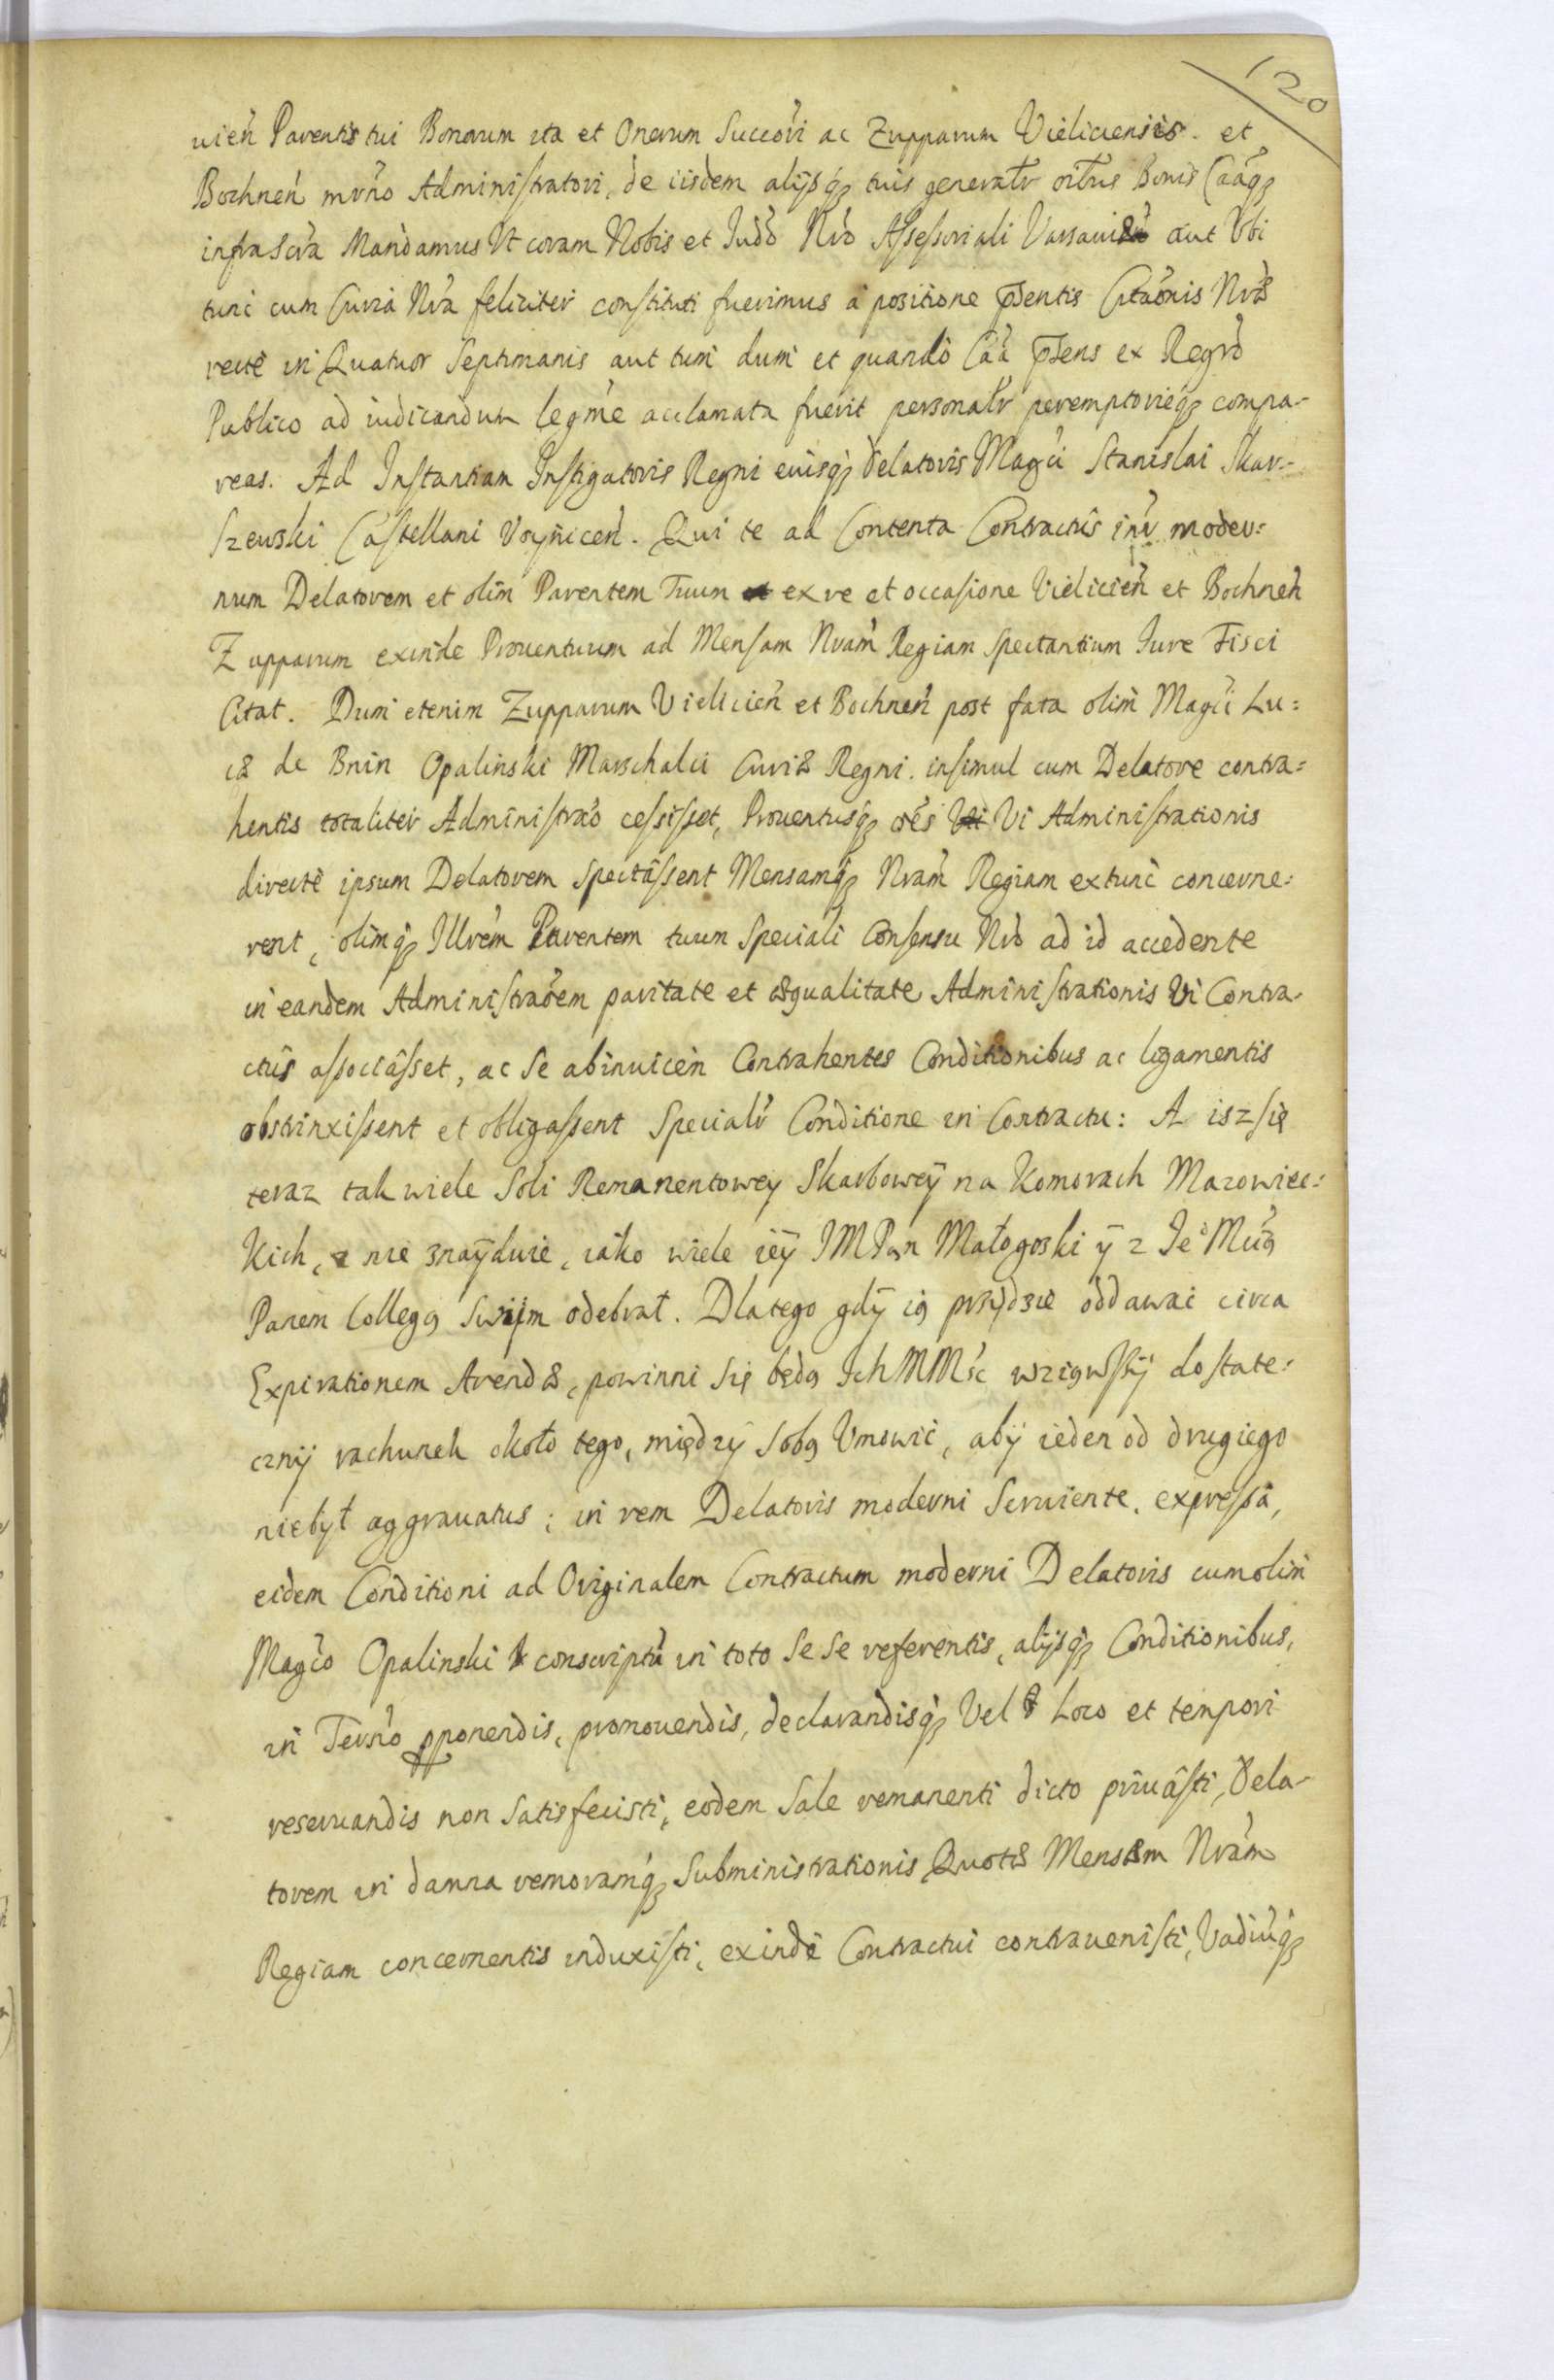 120
uień Parentis tui Bonorum ita et Onerum Succōri ac Zupparum Vieliciensis. et
Bochneń mrno Administratori, de iisdem alijsq3 tuis generalr oibus Bonis Caāq3
infrascra Mandamus Vt coram Nobis et Judō Nrō Assessoriali Varsauiæ aut Vbi
tunc cum Curia Nrā feliciter constituti fuerimus à positione pñtis Citaōnis Nræ
recte in Quatuor Septimanis aut tum dum et quando Caā pñs ex Regrō
Publico ad iudicandum legme acclamata fuerit personalr peremptorieq3 compa-
reas. Ad Instantiam Instigatoris Regni eiusq3 delatoris Magci Stanislai Skar-
szewski Castellani Voyniceń. Qui te ad Contenta Contractûs intr moder:
num Delatorem et olim Parentem Tuum ex re et occasione Vielicień et Bochneń
Zupparum exinde Prouentuum ad Mensam Nram Regiam spectantium Jure Fisci
Citat. Dum etenim Zupparum Vielicień et Bochneń post fata olim Magci Lu:
cæ de Bnin Opalinski Marschalci Curiæ Regni. insimul cum Delatore contra:
hentis totaliter Administrao cessisset, Prouentusq3 oēs Vi Administrationis
directè ipsum Delatorem spectâssent Mensamq3 Nram Regiam extunc concerne:
rent, olimq3 Illrem Parentem tuum Speciali Consensu Nrō ad id accedente
in eandem Administraōem paritate et æqualitate Administrationis Vi Contra-
ctûs associâsset, ac se abinuicem Contrahentes Conditionibus ac ligamentis
obstrinxissent et obligassent Specialr Conditione in Contractu: A isz się
teraz tak wiele Soli Remanentowey Skarbowey na Komorach Mazowiec:
kich, nie znayduie, iako wiele iey JMPan Małogoski y z Je° Mcią
Panem Collegą swijm odebrał. Dlatego gdy ią przydzie oddawać circa
Expirationem Arendæ, powinni się będą Ich MMsc wziąwszÿ dostate:
cznÿ rachunek około tego, międzÿ sobą Vmowić, abÿ ieden od drugiego
niebÿł aggrauatus; in rem Delatoris moderni Seruiente. expressâ,
eidem Conditioni ad Originalem Contractum moderni Delatoris cum olim
Magco Opalinski conscriptū in toto se se referentis, alijsq3 Conditionibus,
in Termo pponendis, promouendis, declarandisq3 Vel Loco et tempori
reseruandis non satisfecisti, eodem Sale remanenti dicto priuâsti, dela-
torem in damna remoramq3 Subministrationis Quotæ Mensam Nram
Regiam concernentis induxisti, exinde Contractui contrauenisti, Vadiumq3